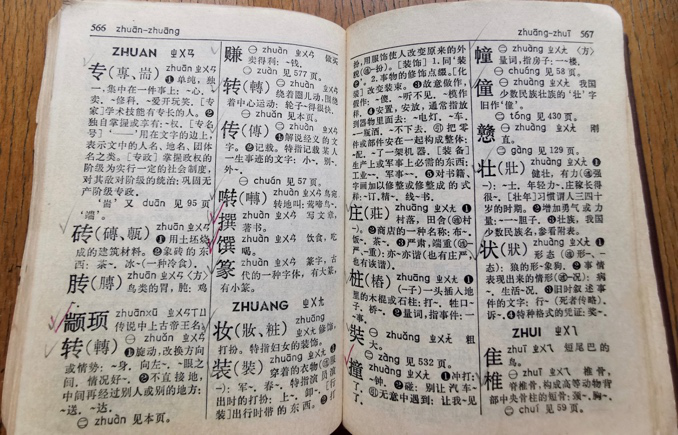 566 zhuān–zhuāng
ZHUAN ㄓㄨㄢ
专(專、耑) zhuān ㄓㄨㄢ
❶单纯,独
一,集中在一件事上:~心.
卖.~修科.~爱开玩笑.[专
家]学术技能有专长的人。❷
独自掌握或享有:~权.[专名
号]“——”用在文字的边上,
表示文中的人名、地名、团体
名之类。[专政]掌握政权的
阶级为实行一定的社会制度,
对其敌对阶级的统治:巩固无
产阶级专政.
“耑”又 duān 见95页
“端”。
砖(磚、甎) zhuān ㄓㄨㄢ
❶用土坯烧
成的建筑材料。❷象砖的东
西:茶~.冰~(一种冷食).
䏝(膞) zhuān ㄓㄨㄢ〈方〉
鸟类的胃,肫:鸡
~.
颛顼 zhuānxū ㄓㄨㄢ ㄒㄩ
传说中上古帝王名。
转(轉) ㊀ zhuǎn ㄓㄨㄢˇ
❶旋动,改换方向
或情势:~身.向左~.~眼之
间.情况好~.❷不直接地,
中间再经过别人或别的地方:
~送.~达.
㊁ zhuàn 见本页。
赚 ㊀ zhuàn ㄓㄨㄢˋ 做买
卖得利:~钱.
㊁ zuàn 见577页。
转(轉) ㊁ zhuàn ㄓㄨㄢˋ
绕着圈儿动,围绕
着中心运动:轮子~得很快.
㊀ zhuǎn 见本页。
传(傳) ㊁ zhuàn ㄓㄨㄢˋ
❶解说经义的文
字。❷记载。特指记载某人
一生事迹的文字:小~.别~.
外~.
㊀ chuán 见57页。
啭(囀) zhuàn ㄓㄨㄢˋ 鸟宛
转地叫:莺啼鸟~.
撰 zhuàn ㄓㄨㄢˋ 写文章,
著书。
馔 zhuàn ㄓㄨㄢˋ 饮食,吃
喝。
篆 zhuàn ㄓㄨㄢˋ 篆字,古
代的一种字体,有大篆,
有小篆。
ZHUANG ㄓㄨㄤ
妆(妝、粧) zhuāng ㄓㄨㄤ 修饰,
打扮。特指妇女的装饰。
装(裝) zhuāng ㄓㄨㄤ ❶
穿着的衣物
军~.春~.特指演员演
出时的打扮:上~.卸~.[行
装]出行时带的东西。❷打
zhuāng–zhuī 567
扮,用服饰使人改变原来的外
[装饰]1.同“装
2.事物的修饰点缀。[化
装]改变装束。❸故意做作,
假作:~傻.~听不见.~模作
样.❹安置,安放,通常指放
到器物里面去:~电灯.~车.
~一瓶酒.~不下去.㊀把零
件或部件安在一起构成整体:
~配.~了一架机器.[装备]
生产上或军事上必需的东西:
工业~.军事~.❺对书籍、
字画加以修整或修整成的式
样:~订.精~.线~书.
庄(莊) zhuāng ㄓㄨㄤ ❶
村落,田舍
❷商店的一种名称:布~.
饭~.茶~.❸严肃,端重
~重):亦~亦谐(也有庄严,
也有诙谐).
桩(樁) zhuāng ㄓㄨㄤ ❶
(~子)一头插入地
里的木棍或石柱:打~.牲口
~.桥~.❷量词,指事件:一
~事.
奘 ㊀ zhuǎng ㄓㄨㄤˇ 粗
大。
㊁ zàng 见532页。
撞 zhuàng ㄓㄨㄤˋ ❶冲打:
~钟.❷碰:别让汽车~
了.㊀无意中遇到:让我~见
幢 ㊀ zhuàng ㄓㄨㄤˋ〈方〉
量词,指房子:一~楼.
㊁ chuáng 见58页。
僮 ㊀ zhuàng ㄓㄨㄤˋ 我国
少数民族壮族的“壮”字
旧作“僮”。
㊁ tóng 见430页。
戆 ㊀ zhuàng ㄓㄨㄤˋ 刚
直。
㊁ gàng 见129页。
壮(壯) zhuàng ㄓㄨㄤˋ ❶
健壮,有力
~):~士.年轻力~.庄稼长得
很~.[壮年]习惯谓人三四十
岁的时期。❷增加勇气或力
量:~一~胆子.❸壮族,我国
少数民族名,参看附表。
状(狀) zhuàng ㄓㄨㄤˋ ❶
形态
态):狼的形~象狗.❷事情
表现出来的情形
~.生活~况.❸旧时叙述事
件的文字:行~(死者传略).
诉~.❹特种格式的凭证:奖~.
ZHUI ㄓㄨㄟ
隹 zhuī ㄓㄨㄟ 短尾巴的
鸟。
椎 ㊀ zhuī ㄓㄨㄟ 椎骨,
脊椎骨,构成高等动物背
部中央骨柱的短骨:颈~.胸~.
㊁ chuí 见59页。